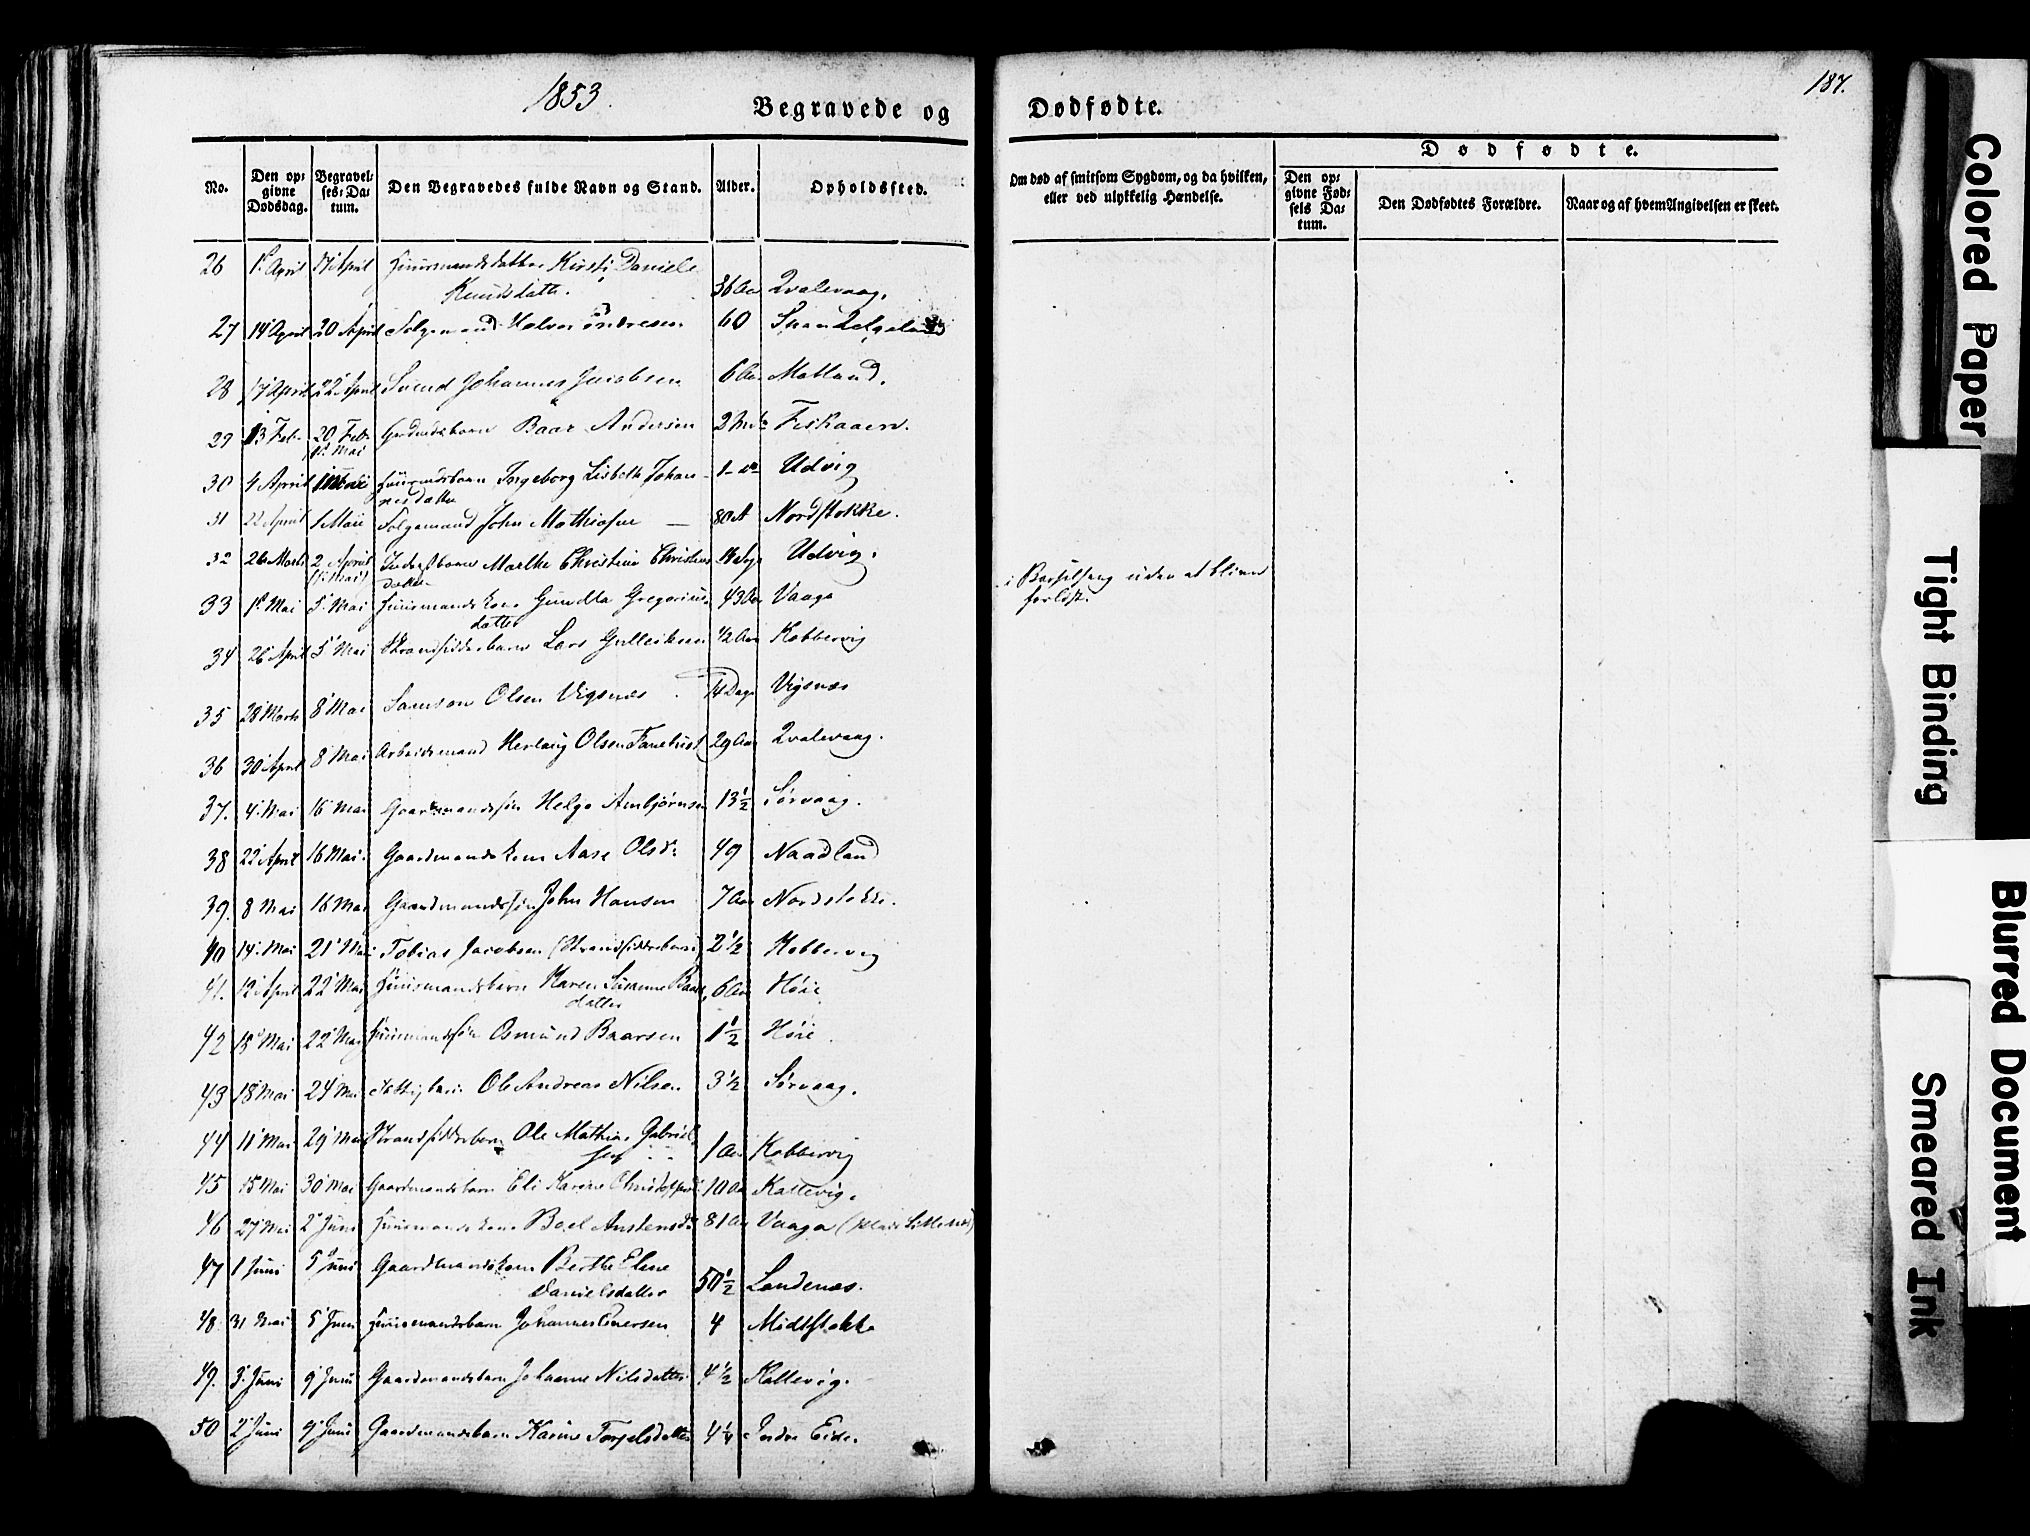 1853.
187.
Begravede og Dødfødte.
No.
Den opgivne Dødsdag.
Begravelses-Datum.
Den Begravedes fulde Navn og Stand.
Alder.
Opholdssted.
Om død af smitsom Sygdom, og da hvilken, eller ved ulykkelig Hændelse.
Dødfødte.
Den opgivne Fødsels Datum.
Den Dødfødtes Forældre.
Naar og af hvem Angivelsen er skeet.
26 1 April 17 April Huusmandsdatter Kirsti Daniele
Knudsdatter. 36 Aar Qvalevaag.
27 14 April 20 April Halvor Andresen 60
28 17 April 22 April Svend Johannes Jacobsen 6 Aar Matland.
29 13 Feb. 20 Feb. Baar Andersen 2 Fiskaaen.
1 Mai
30 4 April Ingeborg Lisbeth Johan-
nesdatter Udvig
31 22 April 1 Mai John Mathiasen — 80 A Nordstokke.
32 26 Marts 2 April Marthe Christine Christens
datter Udvig.
(1 Mai)
33 1 Mai 5 Mai Huusmandskone Gundla Gregorius
datter 43 Aar Vaaga i Barselseng uden at blive
forløst.
34 26 April 5 Mai Strandsidderbarn Lars Gulleiksen 1/2 Aar Kobbervig
35 28 Marts 8 Mai Samson Olsen Vigsnæs 14 Dage Vigsnæs
36 30 April 8 Mai Arbeidsmand Herlaug Olsen 29 Aar Qvalevaag.
37. 4 Mai 16 Mai Gaardmandssøn Helge Ambjørnsen 13 1/2 Sørvaag.
38 22 April 16 Mai Gaardmandskone Aase Olsd: 49 Naadland
39. 8 Mai 16 Mai Gaardmandssøn John Hansen 7 Aar Nordstokke.
40 14 Mai 21 Mai Tobias Jacobsen (Strandsidderbarn) 2 1/2 Kobbervig
41. 12 April 22 Mai Huusmandsbarn Karen Susanne Baars
datter 6 Aar Høie
42 15 Mai 22 Mai Huusmandssøn Osmund Baarsen 1 1/2 Høie.
43 18 Mai 24 Mai Ole Andreas Nilsen 3 1/2 Sørvaag.
44 11 Mai 29 Mai Strandsidderbarn Ole Mathias Gabriel-
sen 1 Aar Kobbervig
45 15 Mai 30 Mai Gaardmandsbarn Eli Karine 10 Kallevig.
46 27 Mai 2 Juni Huusmandskone Boel Anstensd: 81 Aar Vaaga
47 1 Juni 5 Juni Gaardmandskone Berthe Elene
Danielsdatter 50 1/2 Landenæs.
48. 31 Mai 5 Juni Huusmandsbarn Johannes Einersen 4 Midtstokke
49. 3 Juni 9 Juni Gaardmandsbarn Johanne Nilsdatter 4 1/2 Kallevig.
50 2 Juni 9 Juni Gaardmandsbarn Karine Torgelsdatter 4 1/4 Indre Eide.
Colored Paper
Tight Binding
Blurred Document
Smeared Ink